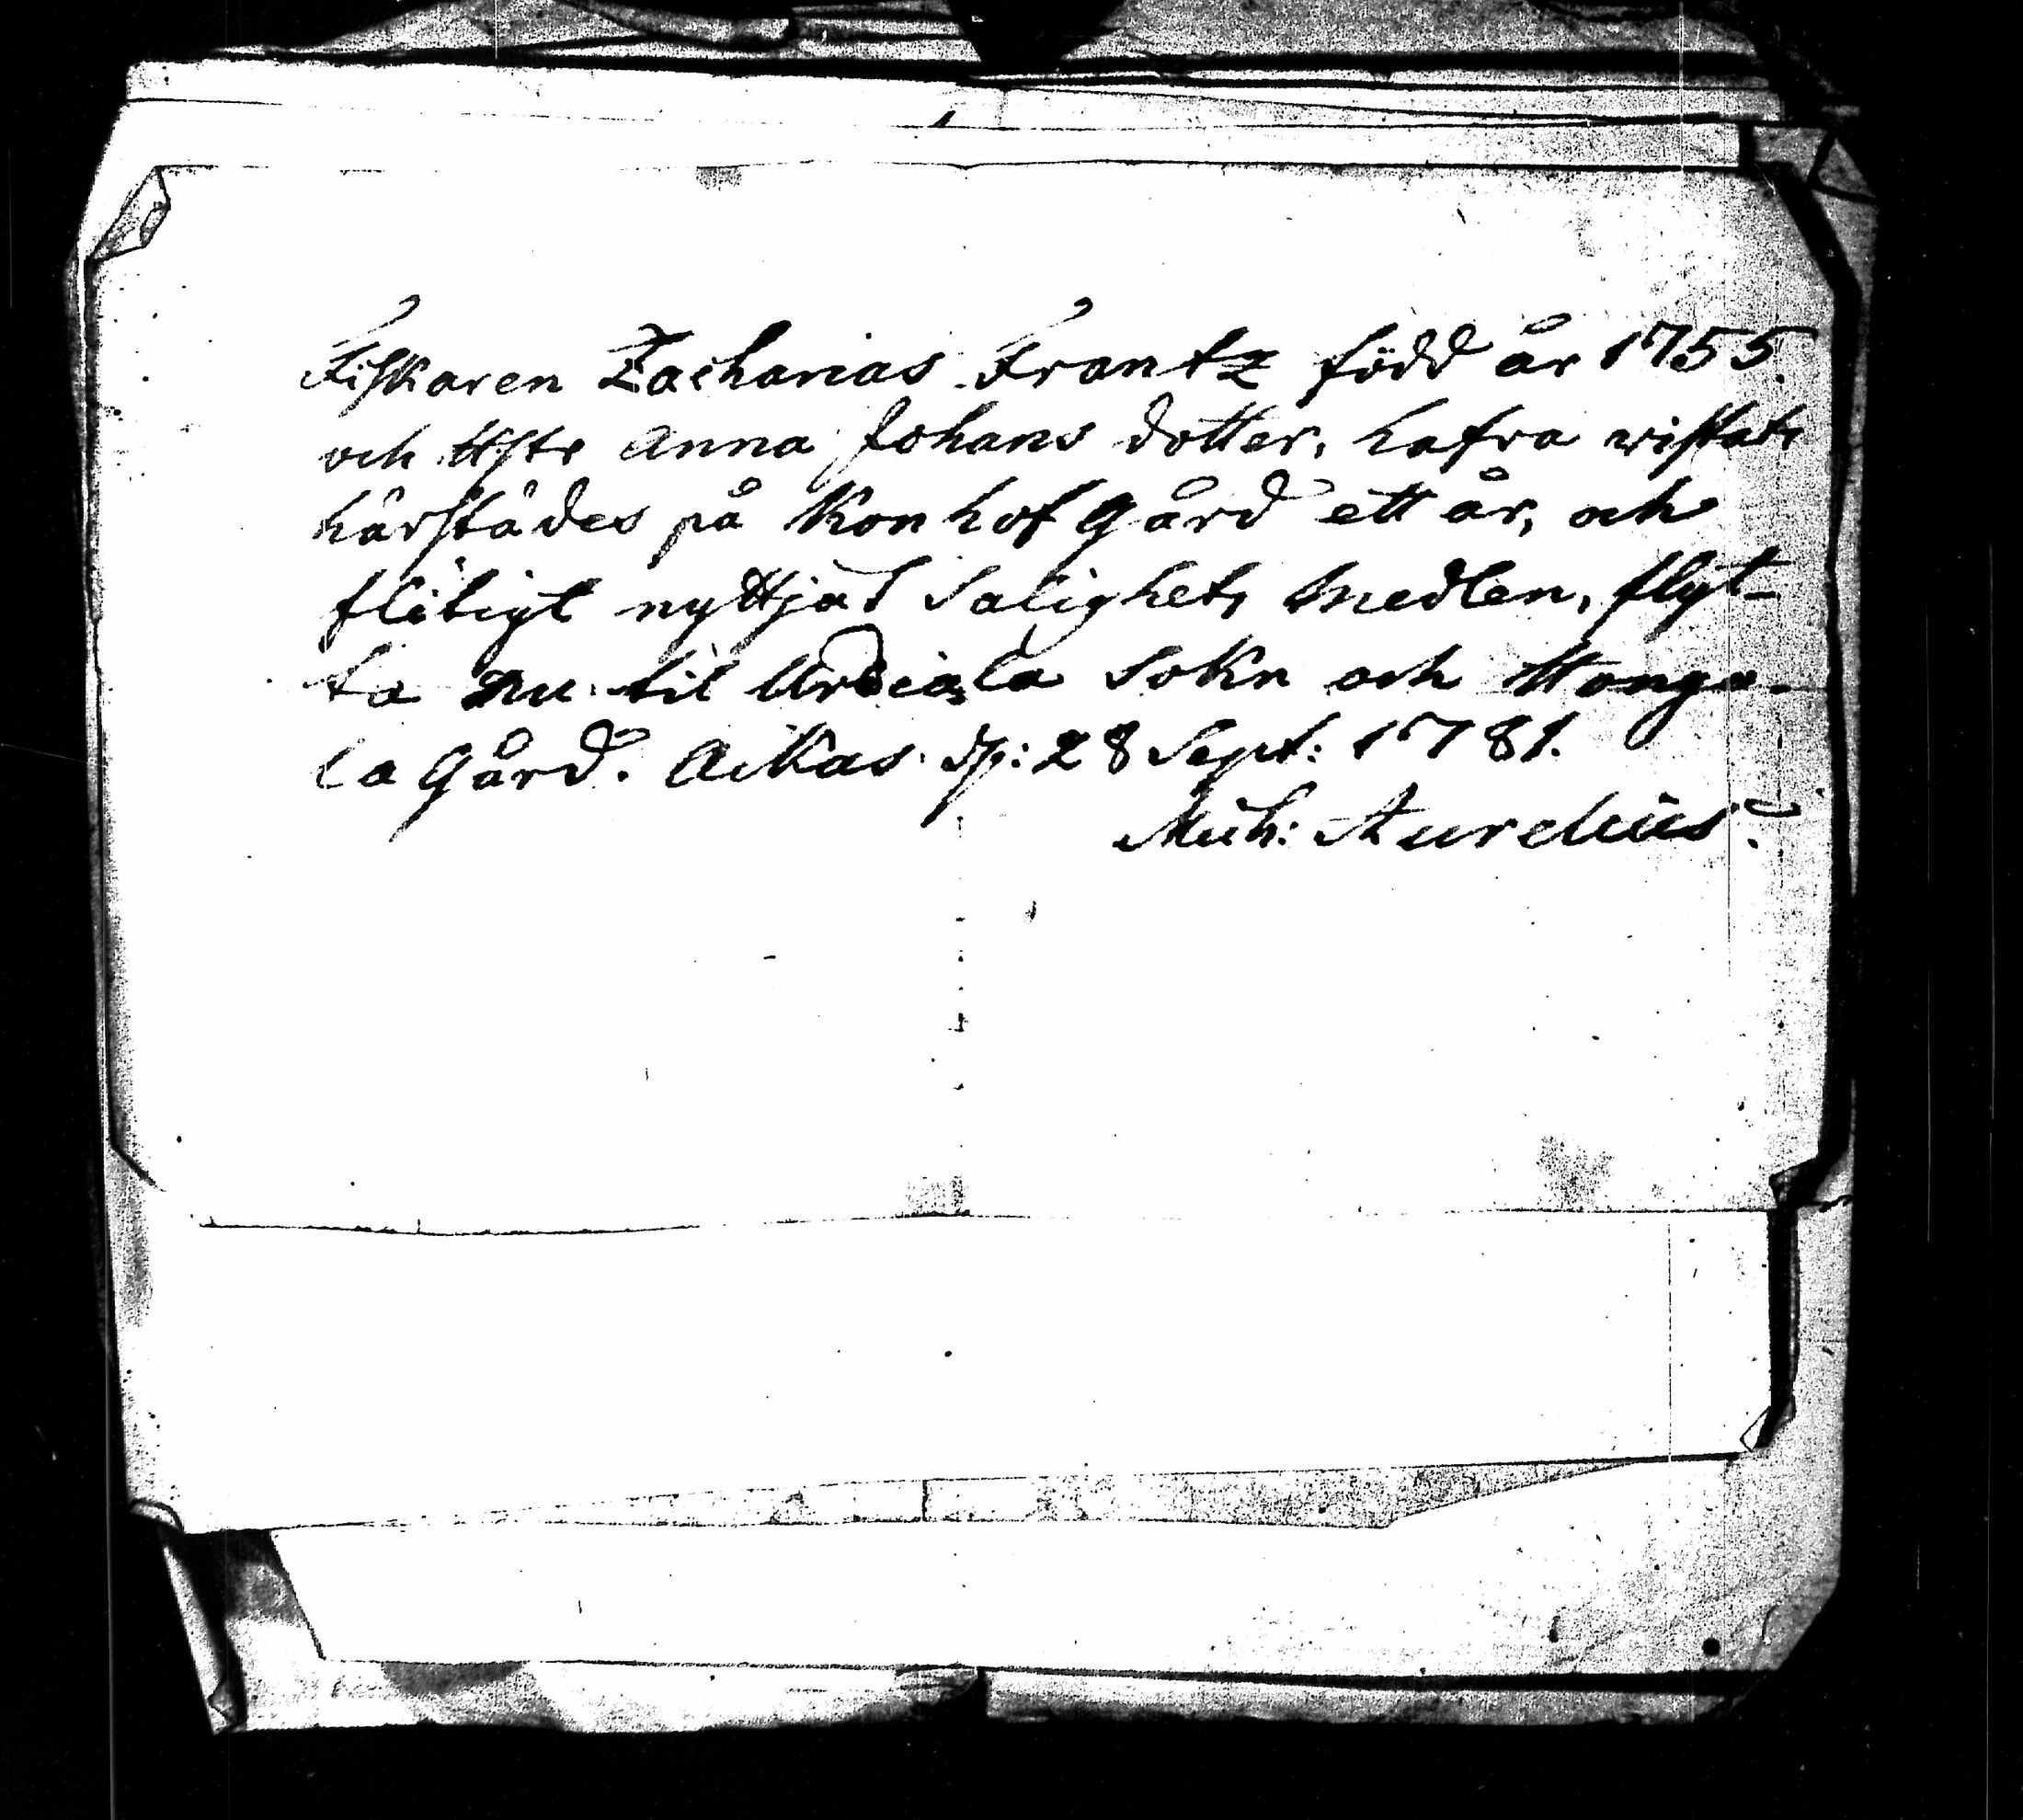 Fiskaren Zacharias Frantz född år 1755.
och Hstr Anna Johans dotter, hafva wistats
härstädes på Konhof gård ett år, och
flitigt nyttjat Salighets medlen, flyt-
ta nu til Urdiala Sokn och Honga-
la Gård. Ackas d. 28 Sept: 1781.
Mich: Aurelius.